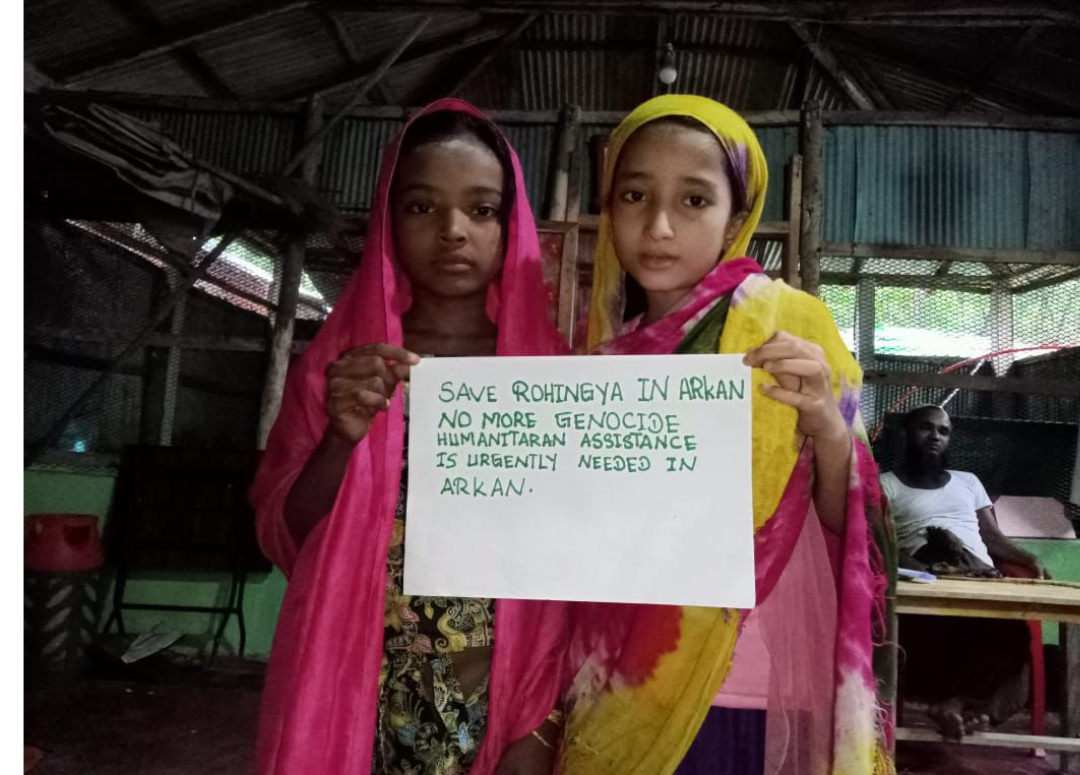 SAVE ROHINGYA IN ARKAN
NO MORE GENOCIDE
HUMANITARAN ASSISTANCE
IS URGENTLY NEEDED IN
ARKAN.